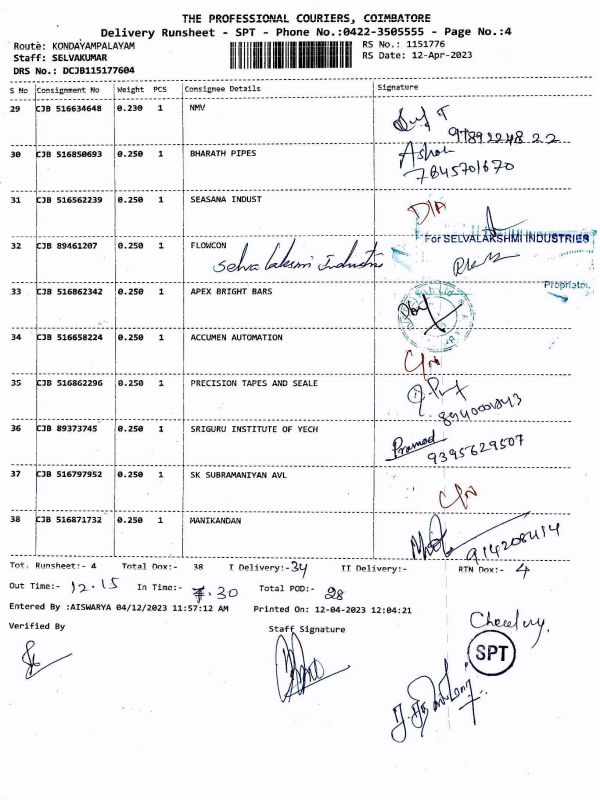 THE PROFESSIONAL COURIERS, COIMBATORE
Delivery Runsheet - SPT - Phone No.:0422-3505555 - Page No.:4
Route: KONDAYAMPALAYAM RS No.: 1151776
Staff: SELVAKUMAR RS Date: 12-Apr-2023
DRS No.: DCJB115177604
S No Consignment No Weight PCS Consignee Details Signature
29 CJB 516634648 0.230 1 NMV
30 CJB 516850693 0.250 1 BHARATH PIPES Ashok
7845701670
31 CJB 516562239 0.250 1 SEASANA INDUST D/A
For SELVALAKSHMI INDUSTRIES
32 CJB 89461207 0.250 1 FLOWCON
Selva laksmi Industries
Proprietor
33 CJB 516862342 0.250 1 APEX BRIGHT BARS
34 CJB 516658224 0.250 1 ACCUMEN AUTOMATION
C/N
35 CJB 516862296 0.250 1 PRECISION TAPES AND SEALE
36 CJB 89373745 0.250 1 SRIGURU INSTITUTE OF YECH Pramod
9395629507
37 CJB 516797952 0.250 1 SK SUBRAMANIYAN AVL
C/N
38 CJB 516871732 0.250 1 MANIKANDAN
Tot. Runsheet:- 4 Total Dox:- 38 I Delivery:-34 II Delivery:- RTN Dox:- 4
Out Time:- 12.15 In Time:- 7.30 Total POD:- 28
Entered By :AISWARYA 04/12/2023 11:57:12 AM Printed On: 12-04-2023 12:04:21
Verified By Staff Signature
SPT